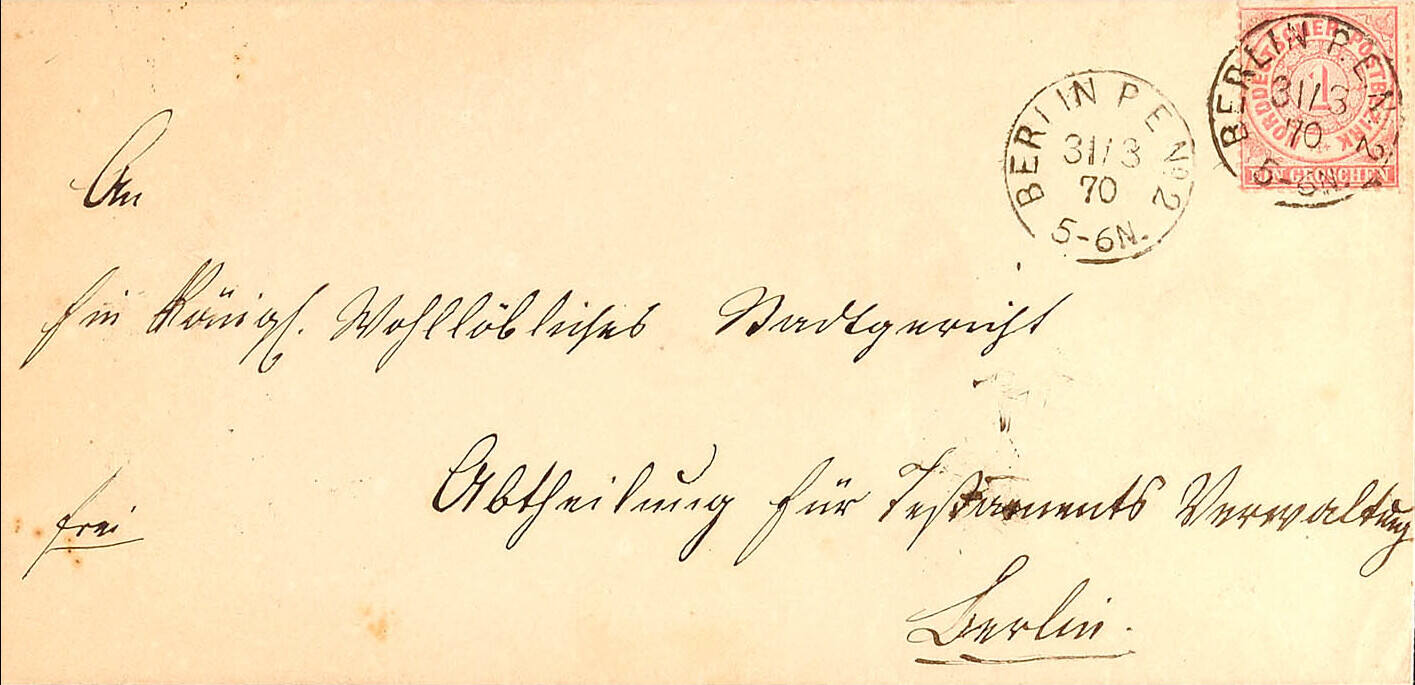 NORDDEUTSCHER POSTBEZIRK
1
EIN GROSCHEN
BERLIN P.E. No. 2
31/3
70
5-6N.
BERLIN P.E. No. 2
31/3
70
5-6N.
An
Ein Königl. Wohllöbliches Stadtgericht
Abtheilung für Testaments Verwaltung
frei
Berlin.